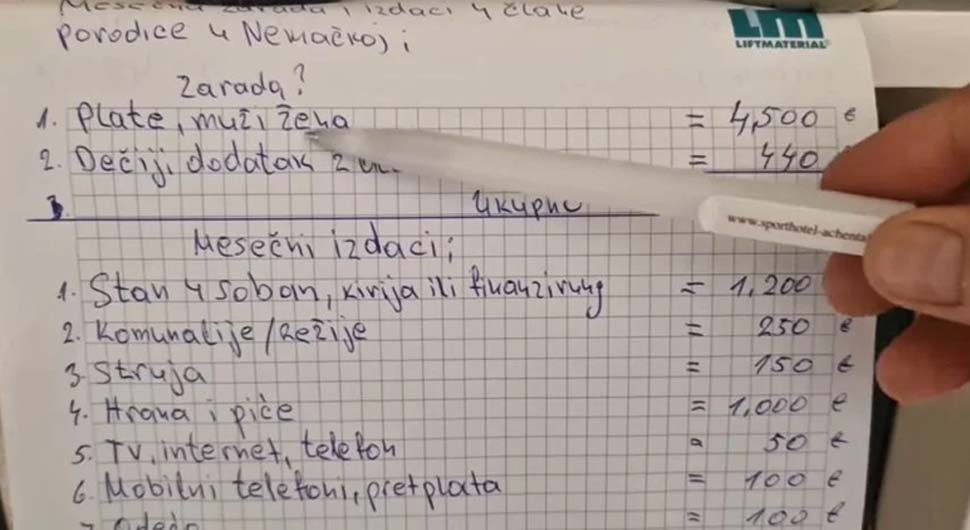 Mesečna zarada i izdaci 4 člane
porodice u Nemačkoj;
LM
LIFTMATERIAL
Zarada?
1. Plate, muž i žena = 4,500 €
2. Dečiji dodatak 2 = 440
3. Укупно
www.sporthotel-achenta
Mesečni izdaci;
1. Stan 4 soban, kirija ili finanzirung = 1,200
2. Komunalije/Režije = 250 €
3. Struja = 150 €
4. Hrana i piće = 1,000 €
5. TV, internet, telefon = 50 €
6. Mobilni telefoni, pretplata = 100 €
7. Odeća = 100 €